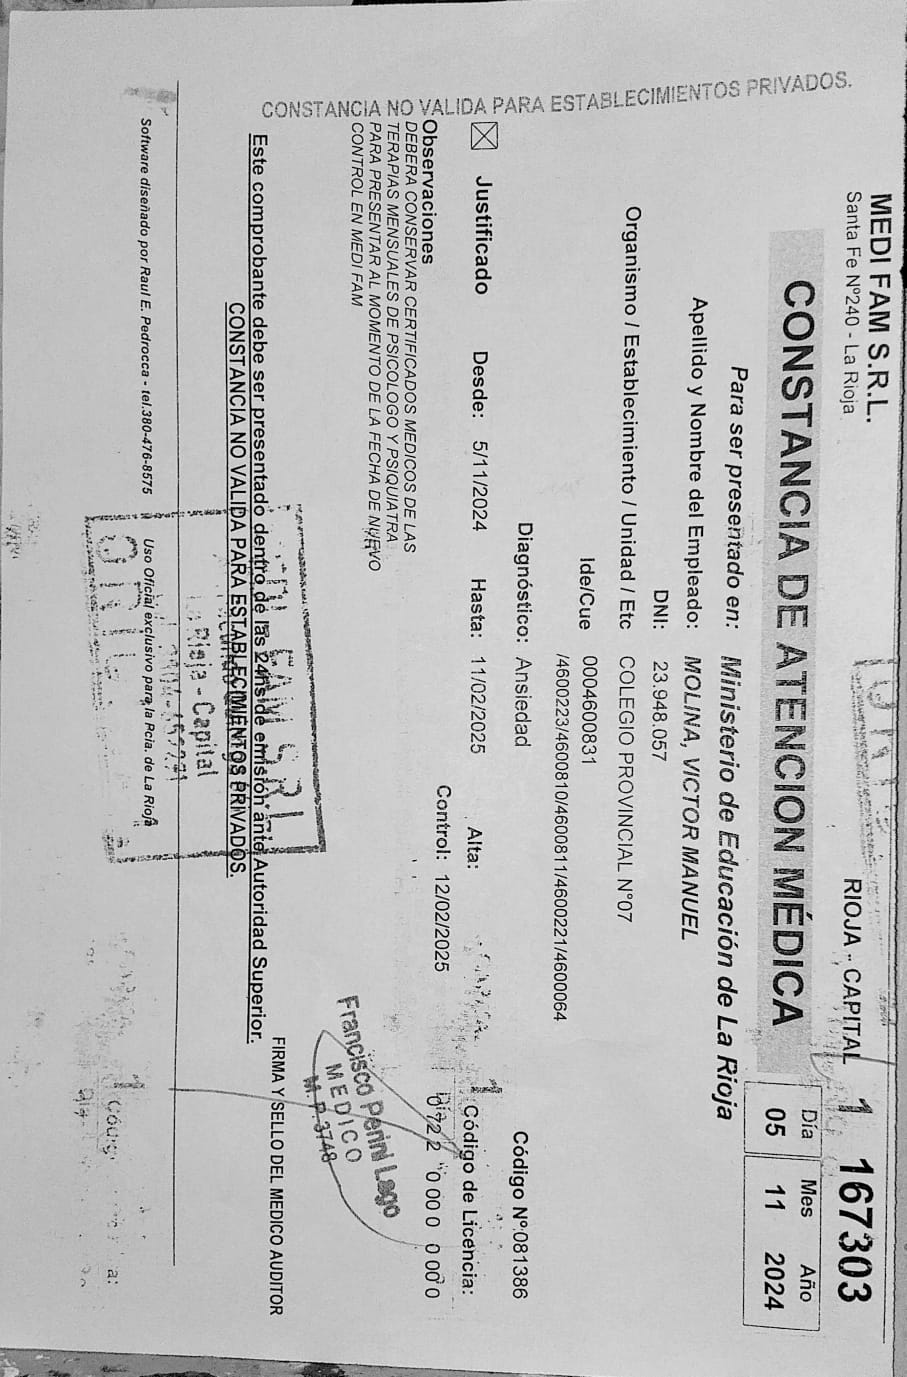 MEDI FAM S.R.L.
Santa Fe Nº240 - La Rioja
RIOJA - CAPITAL
1 167303
CONSTANCIA DE ATENCION MÉDICA
Día Mes Año
05 11 2024
Para ser presentado en: Ministerio de Educación de La Rioja
Apellido y Nombre del Empleado: MOLINA, VICTOR MANUEL
DNI: 23.948.057
Organismo / Establecimiento / Unidad / Etc COLEGIO PROVINCIAL N°07
Ide/Cue 0004600831
/4600223/4600810/4600811/4600221/4600064
Diagnóstico: Ansiedad
Código Nº:081386
Justificado Desde: 5/11/2024 Hasta: 11/02/2025 Alta:
1 Código de Licencia:
Control: 12/02/2025
Observaciones
DEBERA CONSERVAR CERTIFICADOS MEDICOS DE LAS
TERAPIAS MENSUALES DE PSICOLOGO Y PSIQUIATRA
PARA PRESENTAR AL MOMENTO DE LA FECHA DE NUEVO
CONTROL EN MEDI FAM
Francisco Perini Lago
MEDICO
M. P. 3748
FIRMA Y SELLO DEL MEDICO AUDITOR
Este comprobante debe ser presentado dentro de las 24hs de emisión ante Autoridad Superior.
CONSTANCIA NO VALIDA PARA ESTABLECIMIENTOS PRIVADOS.
FAM SRL
La Rioja - Capital
Software diseñado por Raul E. Pedrocca - tel.380-476-8575 Uso Oficial exclusivo para la Pcia. de La Rioja
CONSTANCIA NO VALIDA PARA ESTABLECIMIENTOS PRIVADOS.